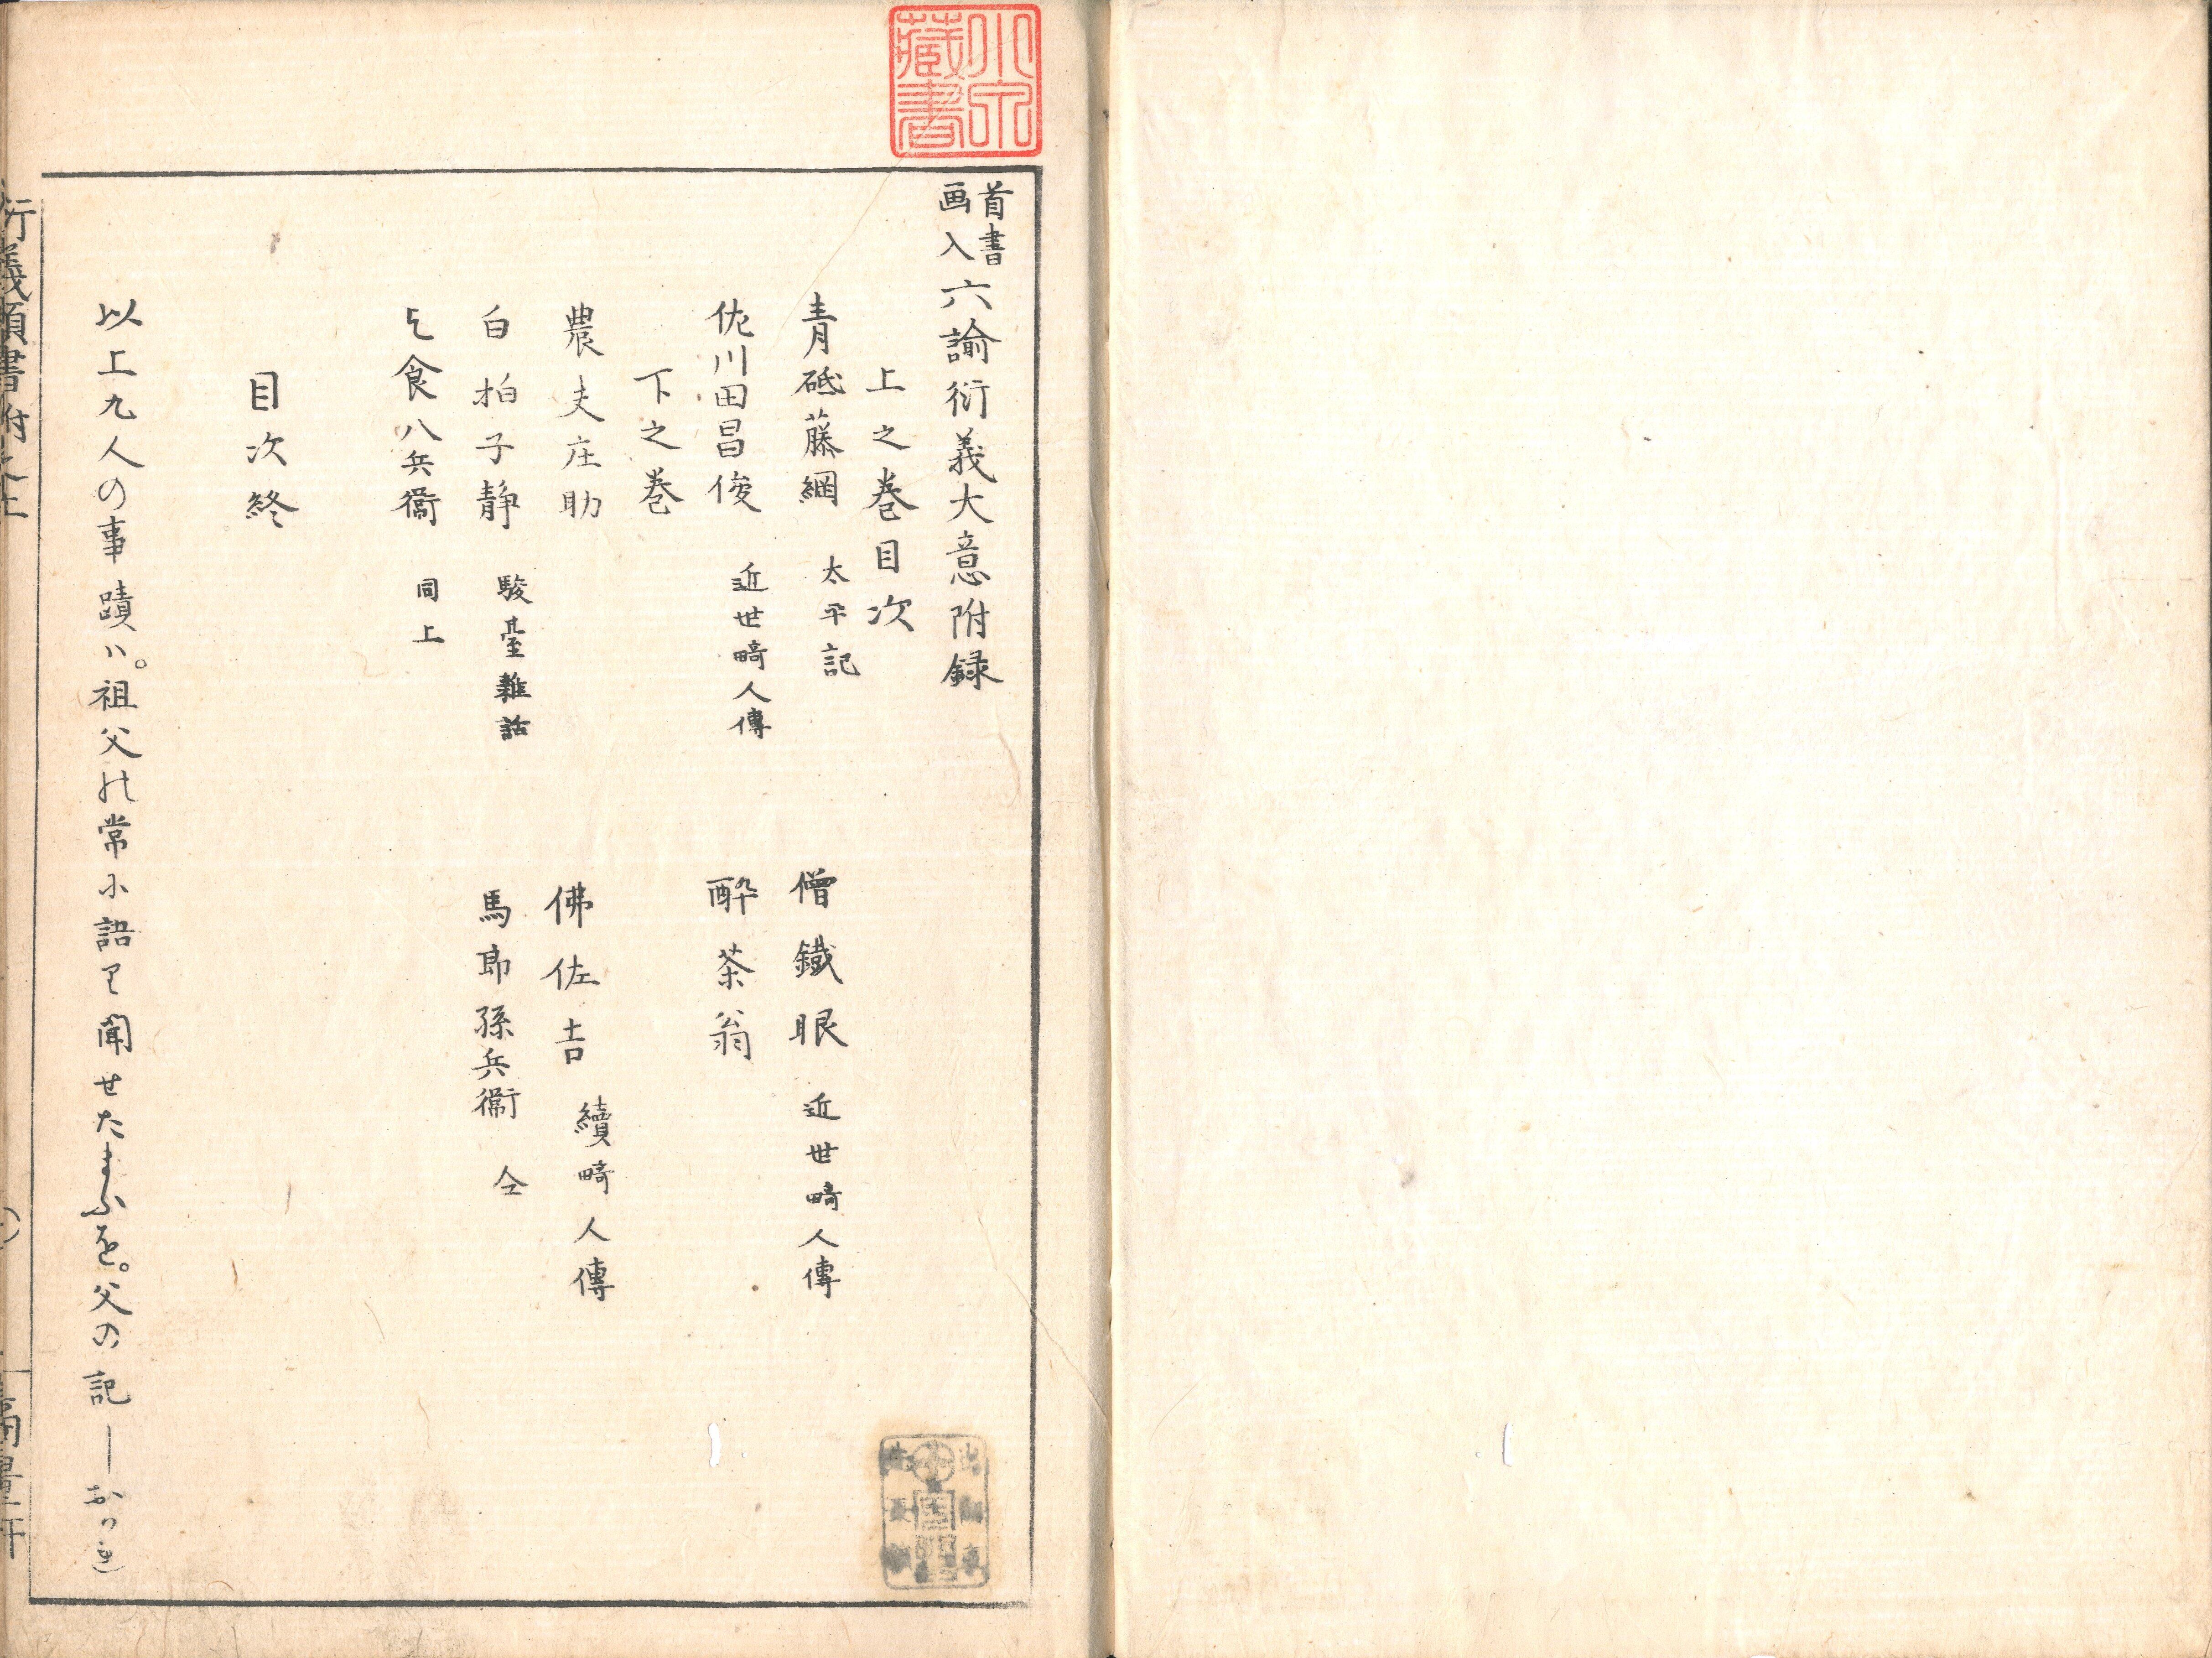 小泉
藏書
首書
画入
六諭衍義大意附録
上之巻目次
青砥藤綱 太平記 僧鐵眼 近世畸人傳
佐川田昌俊 近世畸人傳 酔茶翁
下之巻
農夫庄助 佛佐吉 續畸人傳
白拍子静 駿臺雜話 馬郎孫兵衞 仝
乞食八兵衞 同上
目次終
以上九人の事蹟ハ。祖父の常に語りて聞せたまふを。父の記しおかれ
衍義頭書附之上